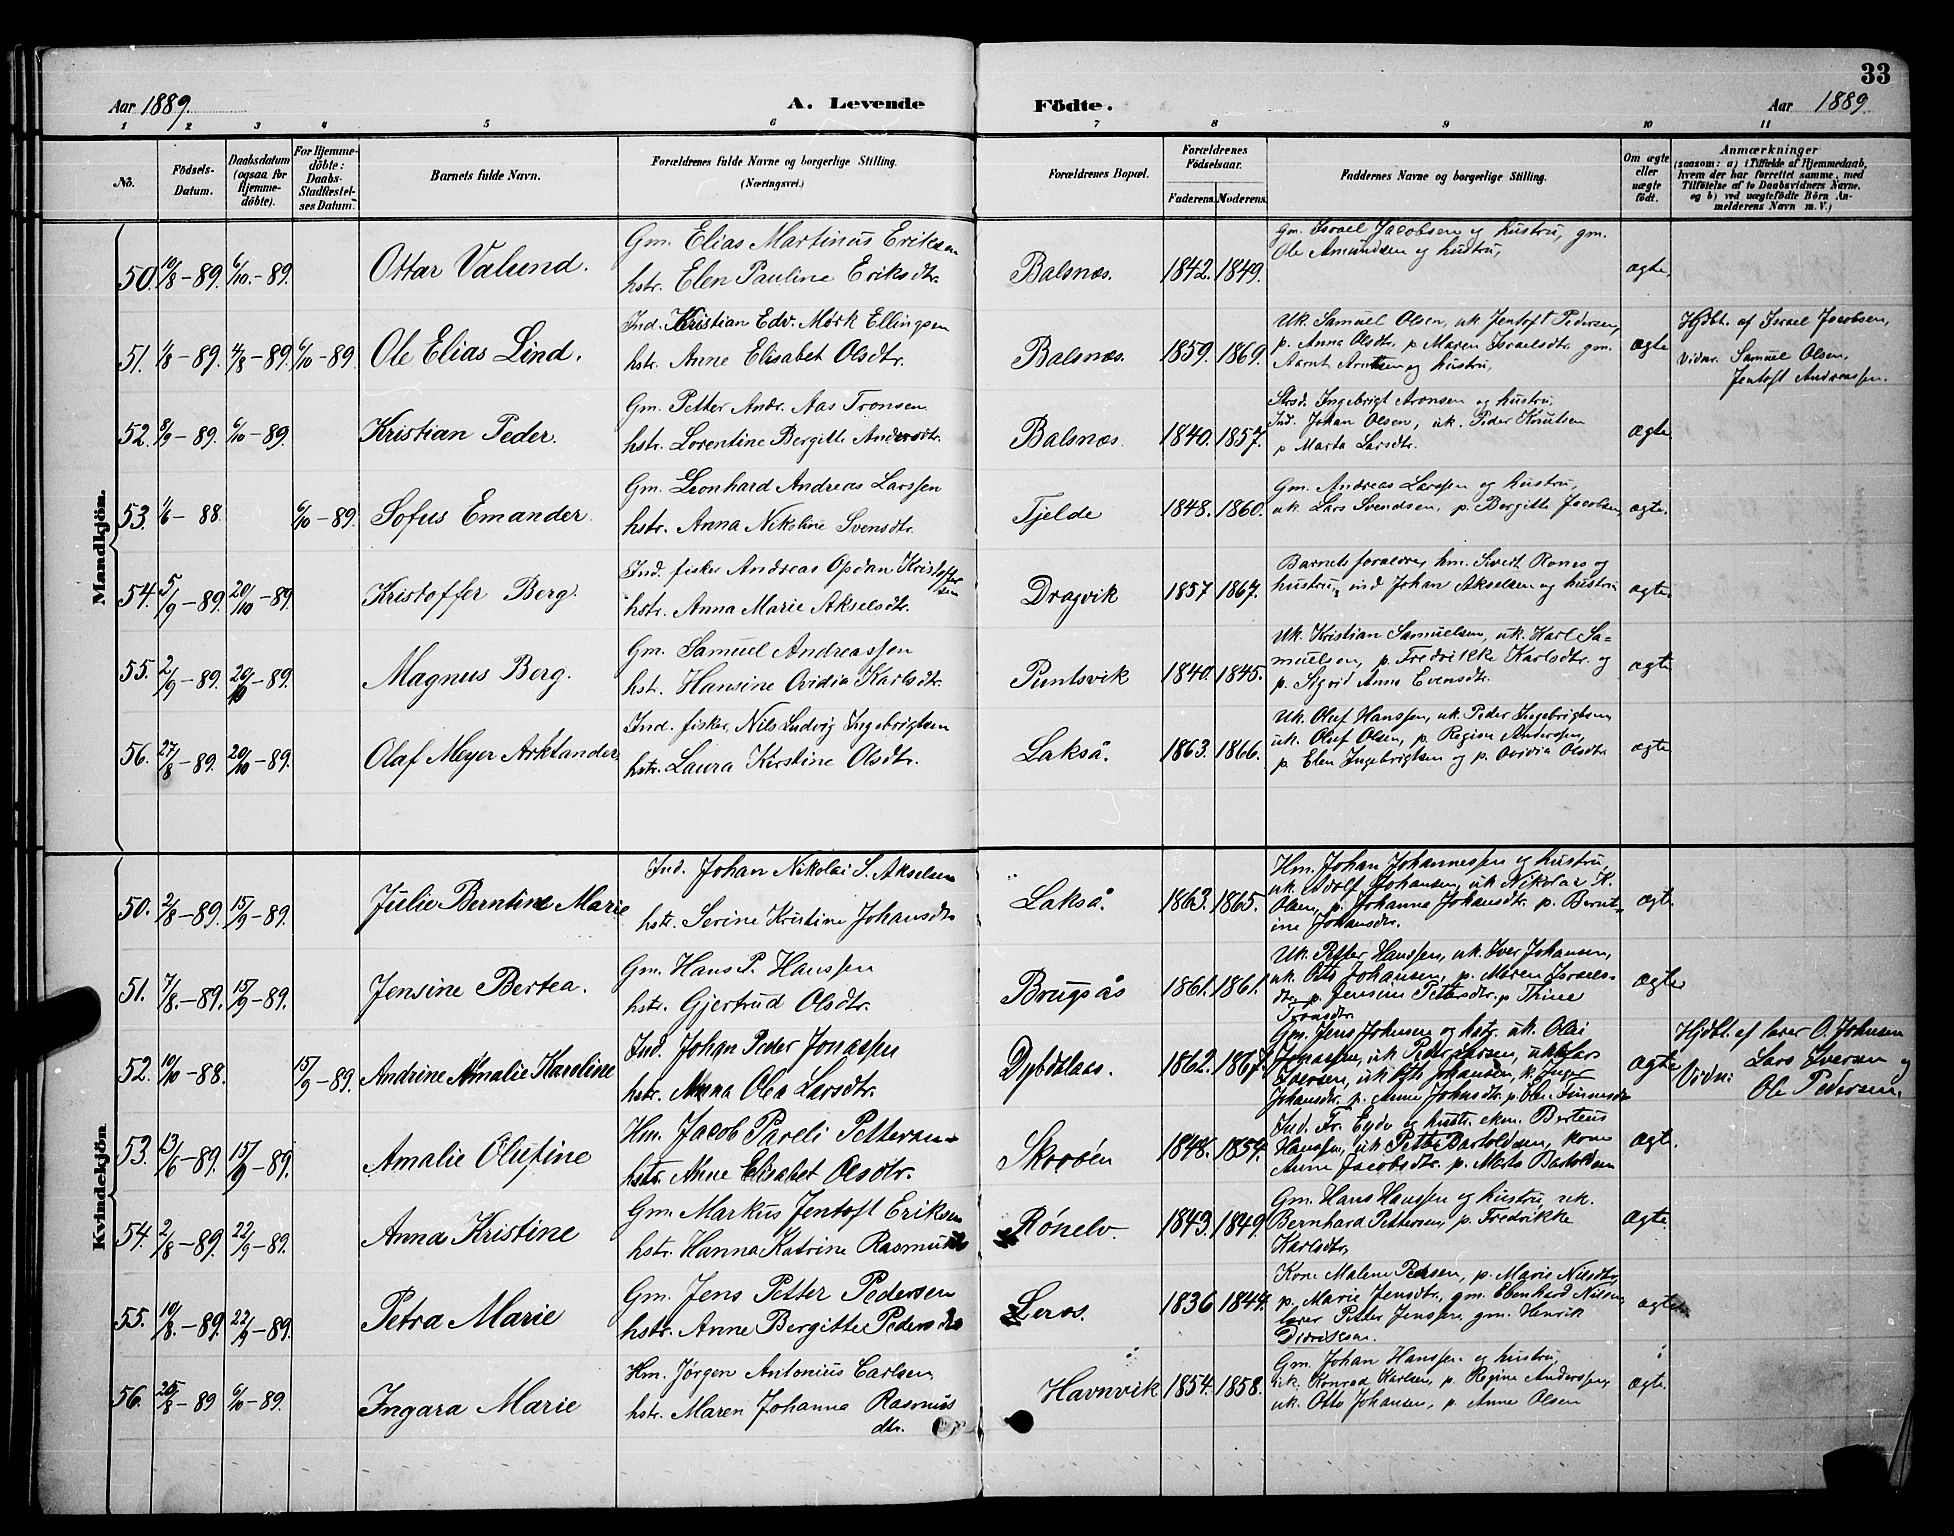 33
Aar 1889. A. Levende Födte. Aar 1889
1 2 3 4 5 6 7 8 9 10 11
No.
Födsels-Datum.
Daabsdatum (ogsaa for Hjemme-döbte).
For Hjemme-döbte: Daabs-Stadfæstel-ses Datum.
Barnets fulde Navn.
Forældrenes fulde Navne og borgerlige Stilling. (Næringsvei.)
Forældrenes Bopæl.
Forældrenes Födselsaar.
Faderens. Moderens.
Faddernes Navne og borgerlige Stilling.
Om ægte eller uægte født.
Anmærkninger
(saasom: a) i Tilfælde af Hjemmedaab,
hvem der har forrettet samme, med
Tilföielse af to Daabsvidners Navne,
og b) ved uægtefödte Börn An-
melderens Navn m.V.)
Mandkjön.
50. 10/8-89. 6/10-89. Ottar Valund.
Gm. Elias Martinus Eriksen
hstr. Elen Pauline Eriksdtr.
Balsnæs. 1842. 1849.
Gm. Israel Jacobsen og hustru, gm.
Ole Amundsen og hustru,
ægte.
51. 1/8-89. 4/8-89. 6/10-89. Ole Elias Lind.
Ind. Kristian Edv. Mørk Ellingsen
hstr. Anne Elisabet Olsdtr.
Balsnæs. 1859. 1869.
Uk. Samuel Olsen, uk. Jentoft Pedersen,
p. Anna Olsdtr. p Maren Israelsdtr. gm.
Aarnt Arntsen og hustru,
ægte
Hjdbt. af Israel Jacobsen,
Vidnr. Samuel Olsen,
Jentoft Andreassen.
52. 8/9-89. 6/10-89. Kristian Peder.
Gm. Petter Andr. Aas Tronsen
hstr. Lorentine Bergitte Andersdtr.
Balsnæs. 1840. 1857.
Ingebrigt Aronsen og hustru,
Ind. Johan Olsen, uk. Peder Knutsen
p Marta Larsdtr.
ægte.
53. 1/6-88 6/10-89. Sofus Emander.
Gm. Leonhard Andreas Larssen
hstr. Anna Nikoline Svensdtr.
Tjelde 1848. 1860.
Gm. Andreas Larssen og hustru,
uk. Lars Svendsen, p. Bergitte Jacobsen,
ægte.
54. 5/9-89. 20/10-89. Kristoffer Berg.
Ind. fisker Andreas Opdan Kristoffersen
hstr. Anna Marie Akselsdtr.
Dragvik 1857 1867.
Barnets forældre, hm. Sivert Rones og
hustru, ind Johan Akselsen og hustru
ægte.
55. 2/9-89. 20/10-89. Magnus Berg.
Gm. Samuel Andreassen
hst. Hansine Ovidia Karlsdtr.
Puntsvik 1840. 1845.
Uk. Kristian Samuelsen, uk. Karl Sa-
muelsen, p. Fredrikke Karlsdtr. og
p. Sigrid Anne Evensdtr.
ægte
56. 27/8-89. 20/10-89. Olaf Meyer Arktander.
Ind. fisker Nils Ludvig Ingebrigtsen
hstr. Laura Kirstine Olsdtr.
Lakså. 1863. 1866.
Uk. Oluf Hanssen, uk. Peder Ingebrigtsen,
uk. Oluf Olsen, p. Regine Anderssen,
p. Elen Ingebrigtsen og p. Ovidia Olsdtr.
ægte
Kvindekjön
50. 2/8-89. 15/9-89. Julie Berntine Marie
Ind. Johan Nikolai S. Akselsen
hstr. Serine Kristine Johansdtr.
Lakså. 1863. 1865.
Hm. Johan Johannessen og hustru,
uk. Adolf Johansen, uk Nikolai K.
Olsen, p. Johanna Johansdtr. p. Bernt-
ine Johansdtr.
ægte.
51. 7/8-89. 15/9-89. Jensine Bertea.
Gm. Hans P. Hanssen
hstr. Gjertrud Olsdtr.
Brugsås 1861. 1861.
Uk. Petter Hanssen, uk. Iver Johansen,
uk. Otto Johansen, p. Maren Israels-
dtr. p. Jensine Pettersdtr. p Thine
Tronsdtr.
ægte
52. 10/10-88. 15/9-89. Andrine Amalie Karoline
Ind. Johan Peder Jonassen
hstr. Anna Olea Larsdtr.
1862. 1867.
Gm. Jens Johnsen og hstr. uk. Olai
Jonassen, uk Peder Larsen, uk Lars
Iversen, uk. Johansen, k. Inger
Johansdtr. p. Anne Johnsdtr. p. Oline
ægte
Hjdbt. af lærer O. Johnsen
Vidn: Lars Iversen og
Ole Pedersen.
53. 13/6-89. 15/9-89. Amalie Olufine
Hm. Jacob Pareli Pettersen
hstr. Anne Elisabet Olsdtr.
Skroøen 1848. 1854.
Ind. Fr. Eydv og hustr. Berteus
Hanssen, uk Petter Bartoldsen, kone
Anne Jacobsdtr. p. Marta Bartoldsen
ægte.
54. 2/8-89. 22/9-89. Anna Kristine
Gm. Markus Jentoft Eriksen
hstr. Hanna Katrine Rasmusdtr
Rönelv. 1843. 1849.
Gm. Hans Hanssen og hustru, uk.
Bernhard Pettersen, p. Fredrikke
Karlsdtr.
ægte.
55. 10/8-89. 22/9-89. Petra Marie
Gm. Jens Petter Pedersen
hstr. Anne Bergitte Pedersdtr
Leros. 1836 1844.
Kone Malene Pedersen, p. Marie Nilsdtr,
p. Marie Jensdtr., gm. Ebenhard Nilsen,
lærer Petter Jenssen, gm. Henrik
Didriksen.
ægte
56. 25/8-89 6/10-89. Ingara Marie
Hm. Jørgen Antonius Carlsen
hstr. Maren Johanna Rasmus
dtr.
Havnvik 1854. 1858.
Gm. Johan Hanssen og hustru,
uk. Konrad Karlsen, p. Regine Anderssen,
uk. Otto Johansen, p. Anne Olsen
ægte.